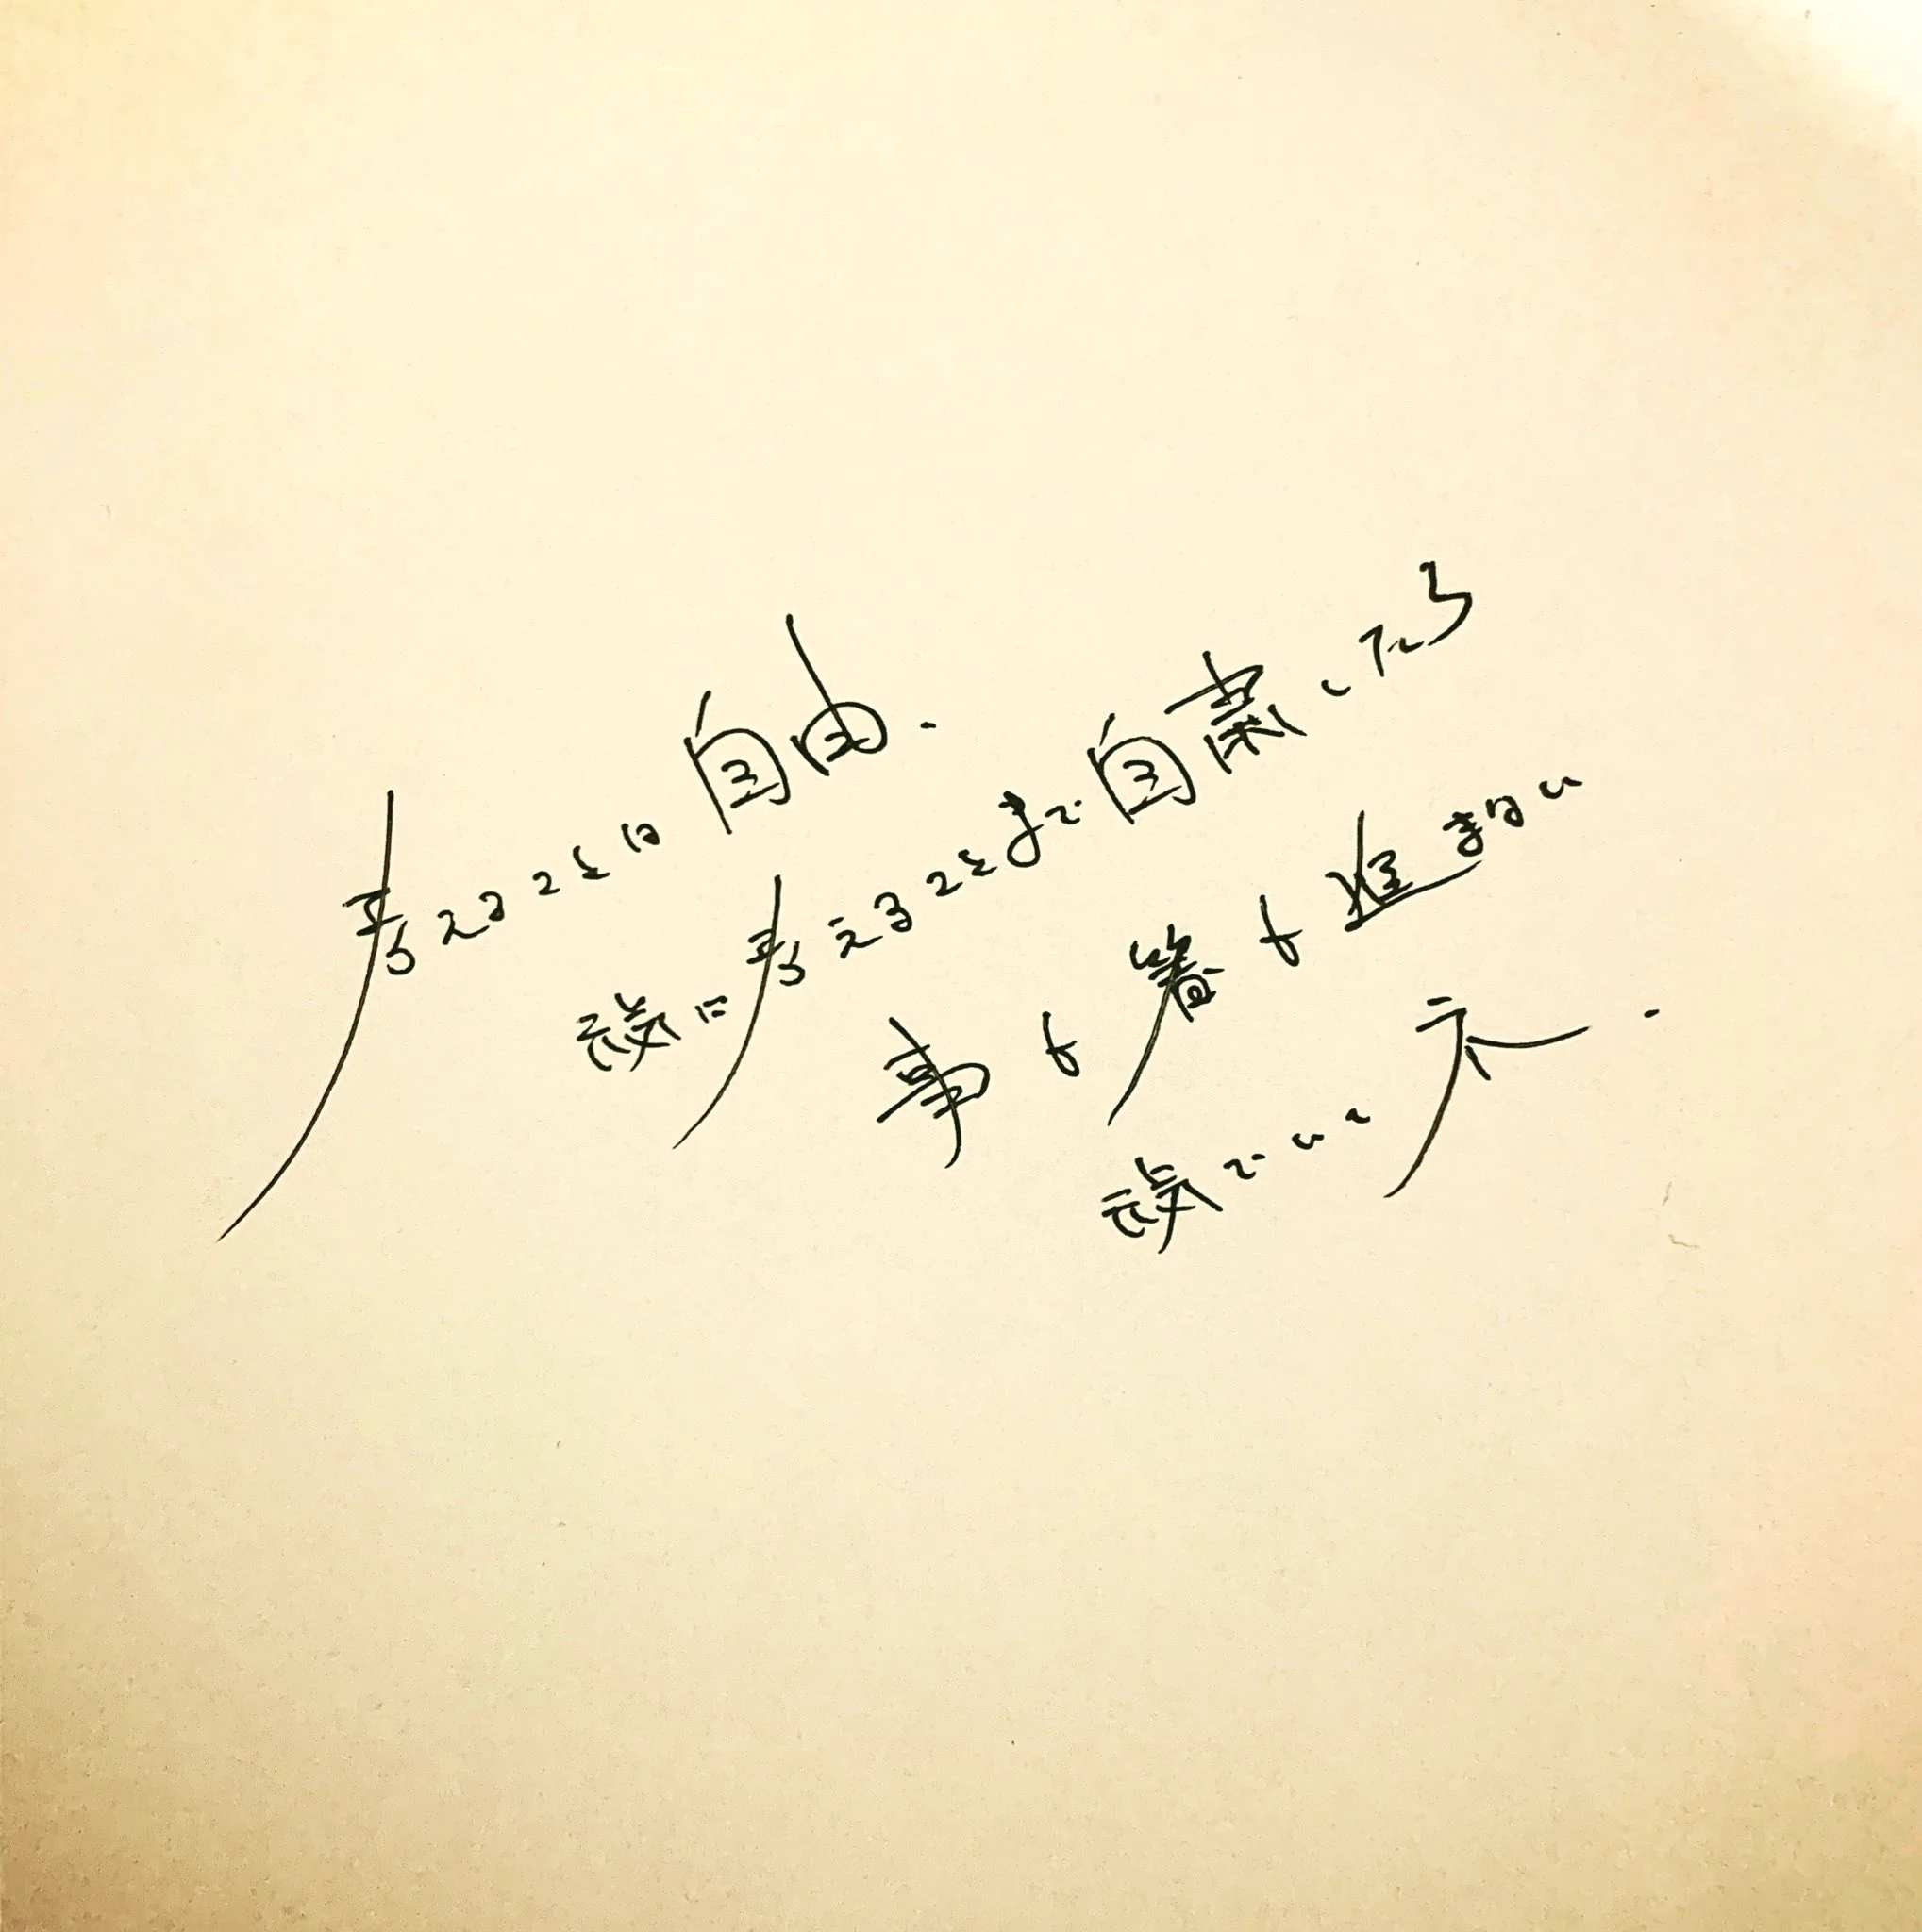 考えることは自由.
に考えることまで自粛したら
事も箸も進まない
でいい